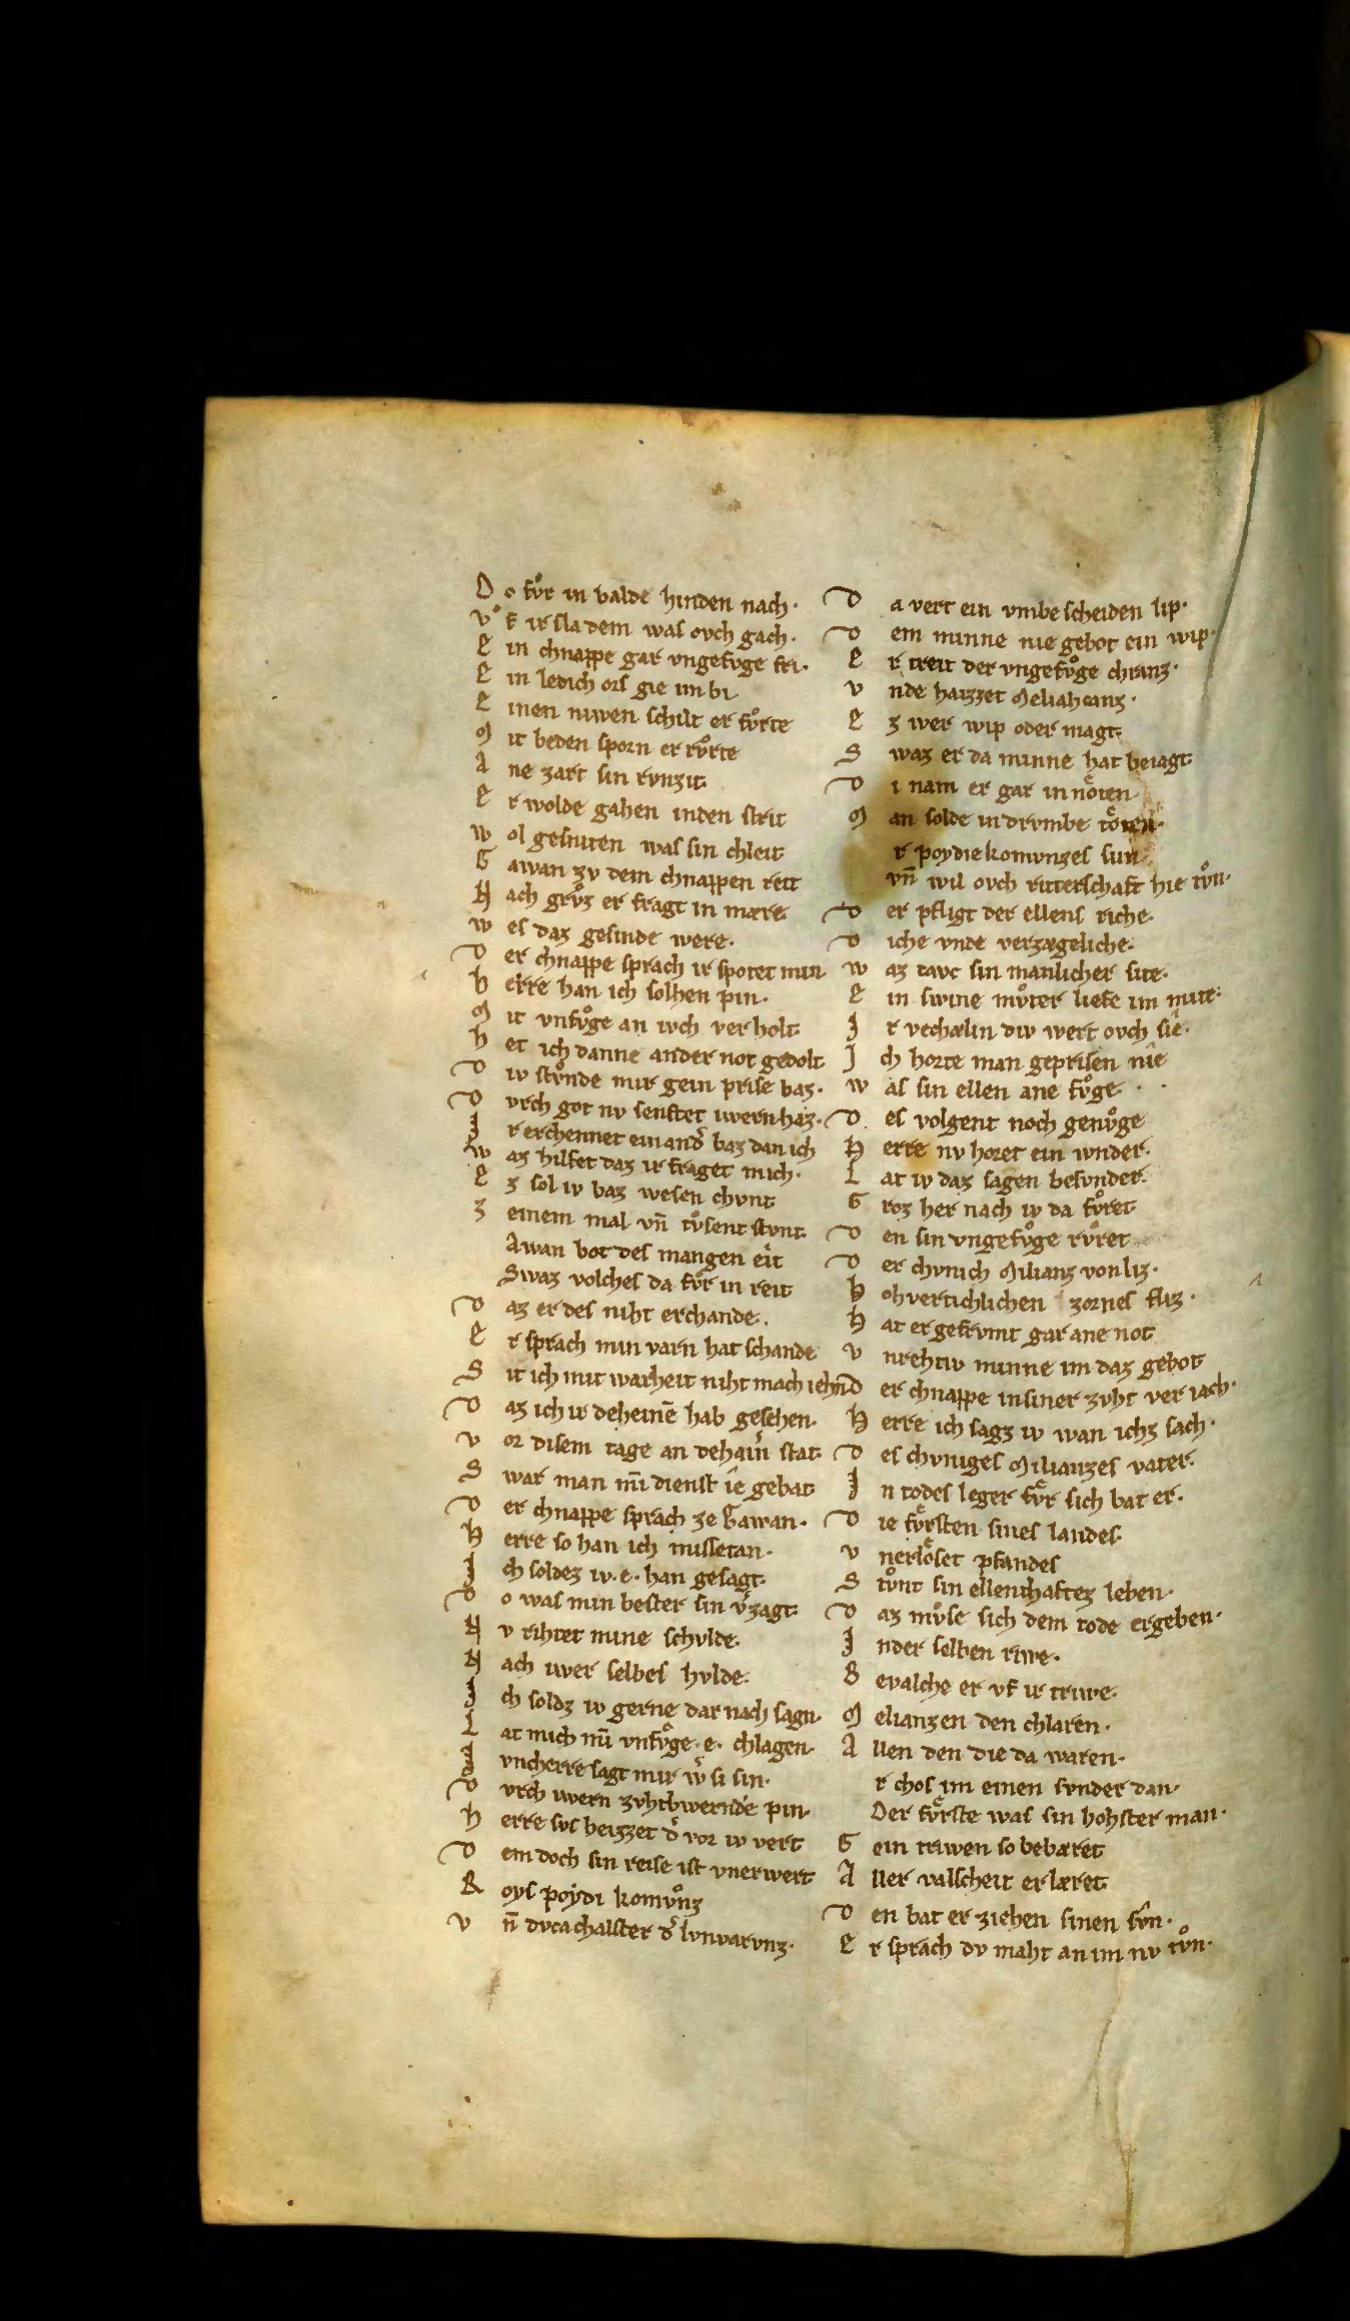 Do fvͦr in balde hinden nach·
vf ir sla dem was ovch gach·
Ein chnappe gar vngefvge fri·
Ein ledich ors gie im bi
Einen niwen schilt er fvͦrte
Mit beden sporn er rvͦrte
Ane zart sin rvnzit
Er wolde gahen inden strit
Wol gesniten was sin chleit
Gawan zv dem chnappen reit
Nach grvͦz er fragt in mære
Wes daz gesinde were·
Der chnappe sprach ir spotet min
Herre han ich solhen pin·
Mit vnfvͦge an iwch verholt
Het ich danne ander not gedolt
Diw stvͦnde mir gein prise baz·
Dvrch got nv senftet iwern haz·
Ir erchennet ein and͛ baz dan ich
Waz hilfet daz ir fraget mich·
Ez sol iv baz wesen chvnt
Zeinem mal vn̄ tvͦsent stvnt
Awan bot des mangen eît
Swaz volches da fvͦr in reit
Daz er des niht erchande·
Er sprach min varn hat schande
Sit ich mit warheit niht mach iehn̄
Daz ich ir deheinē hab gesehen·
Vor disem tage an dehain͛ stat
Swar man mī dienst îe gebat
Der chnappe sprach ze Gawan·
Herre so han ich missetan·
Ich soldez iv·e·han gesagt
Do was min bester sin v͛zagt
Nv rihtet mine schvlde·
Nach iwer selbes hvlde·
Ich soldz iv gerne dar nach sagn·
Lat mich mī vnfvͦge·e· chlagen·
Ivncherre sagt mir w͛ si sin·
Dvrch iwern zvhtbwernde pin·
Herre svs heizzet d͛ vor iv vert
Dem doch sin reise ist vnerwert
Roys poydi komvͦnz
Vn̄ dvcachalster d͛ lvnvarvnz·
Da vert ein vmbescheiden lip·
Dem minne nie gebot ein wip·
Er treit der vngefvͦge chranz·
Vnde haizzet Meliahcanz·
Ez wer wip oder magt
Swaz er da minne hat beiagt
Di nam er gar in nöten
Man solde in drvmbe töten·
r poydiekomvnzes sun
vn̄ wil ovch ritterschaft hie tvͦn·
Der pfligt der ellens riche
Diche vnde verzægeliche
Waz tavc sin manlicher site·
Ein swine mvͦter liefe im mite·
Ir vechælin div wert ovch sie·
Ich horte man geprisen nîe
Was sin ellen ane fvͦge·
Des volgent noch genvͦge
Herre nv horet ein wnder·
Lat iv daz sagen besvnder·
Groz her nach iv da fvͦret
Den sin vngefvͦge rvͦret
Der chvnich Milianz von liz·
Hohvertichlichen zornes fliz·
Hat er gefrvmt gar ane not
Vnrehtiv minne im daz gebot
Der chnappe insiner zvht veriach·
Herre ich sagz iv wan ichz sach·
Des chvniges Milianzes vater
In todes leger fvͤr sich bat er·
Die fvͤrsten sines landes
Vnerlöset pfandes
Stvͦnt sin ellenthaftez leben·
Daz mvͦse sich dem tode ergeben·
Inder selben riwe·
Bevalche er vf ir triwe·
Melianzen den chlaren·
Allen den die da waren·
r chos im einen svnder dan·
Der fvͤrste was sin hohster man·
Gein triwen so bebæret
Aller valscheit erlæret
Den bat er ziehen sinen svn·
Er sprach dv maht an im nv tvͦn·